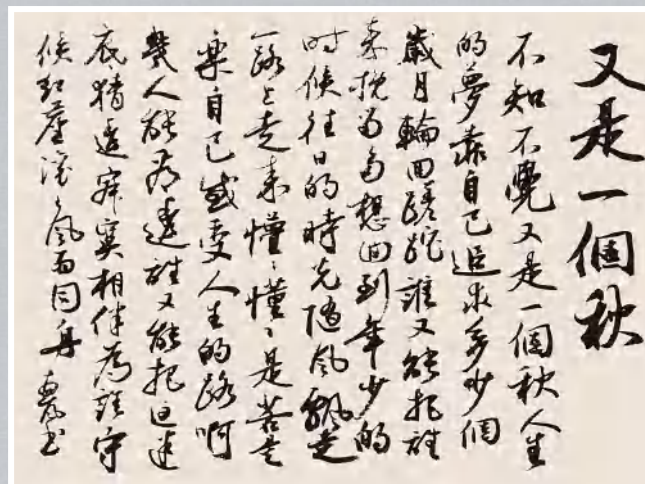 又是一個秋
不知不覺又是一個秋人生
的夢靠自己追求多少個
歲月輪回蹉跎誰又能把誰
來挽留多想回到年少的
时候往日的時光随風飄走
一路上走来懂懂是苦是
樂自己感受人生的路啊
幾人能看透誰又能把這迷
底猜透寂寞相伴為誰守
候紅塵滚滚風雨同舟